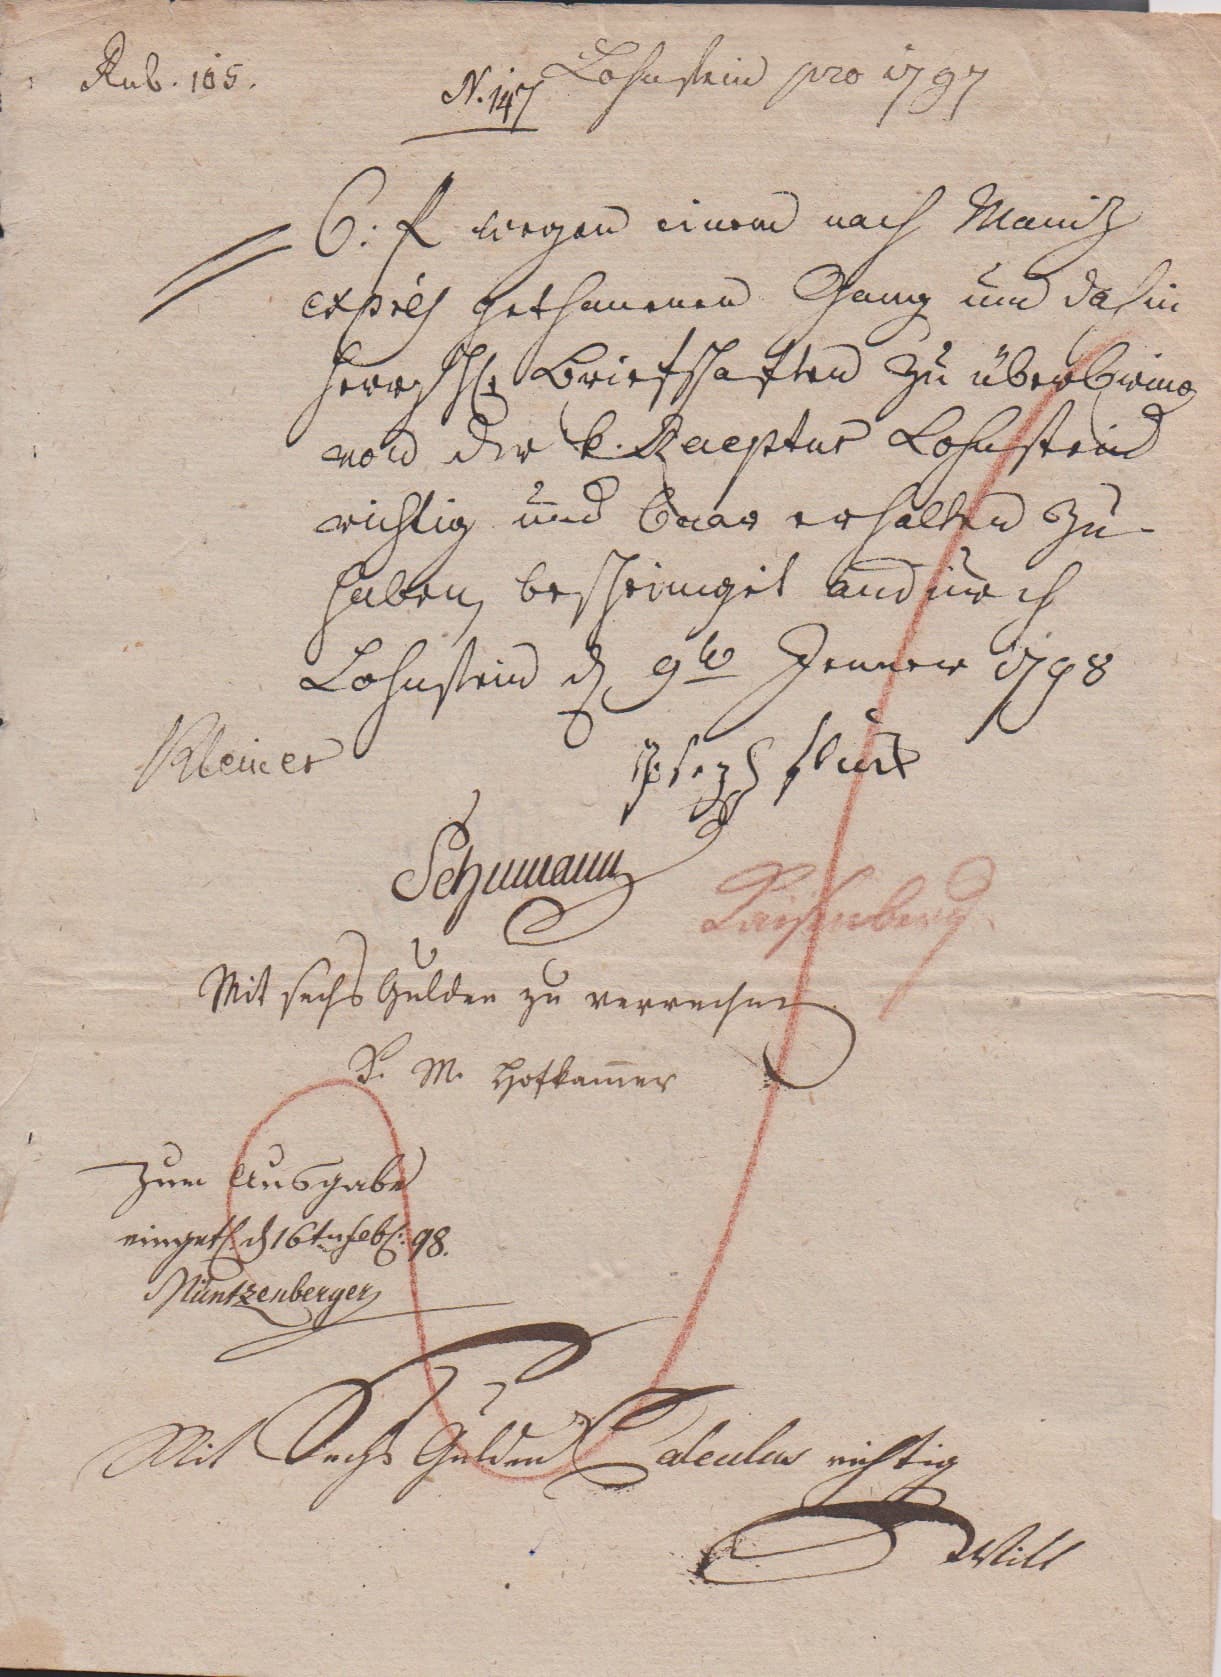 Rub. 105.
N. 147 Lohnstein pro 1797
6: f wegen einem nach Maintz
expres gethanenen Gang um dahin
herrschl. Briefschaften zu überbring
von der k. Receptur Lohnstein
richtig und baar erhalten zu-
haben, bescheiniget andurch
Lohnstein d 9te Jenner 1798
Kleiner
Joseph
Schumann
Mit sechs Gulden zu verrechnen
K. M. Hofkammer
Zum Ausgabe
einget. d 16tn feb: 98.
Müntzenberger
Mit Sechs Gulden Calculus richtig
Will